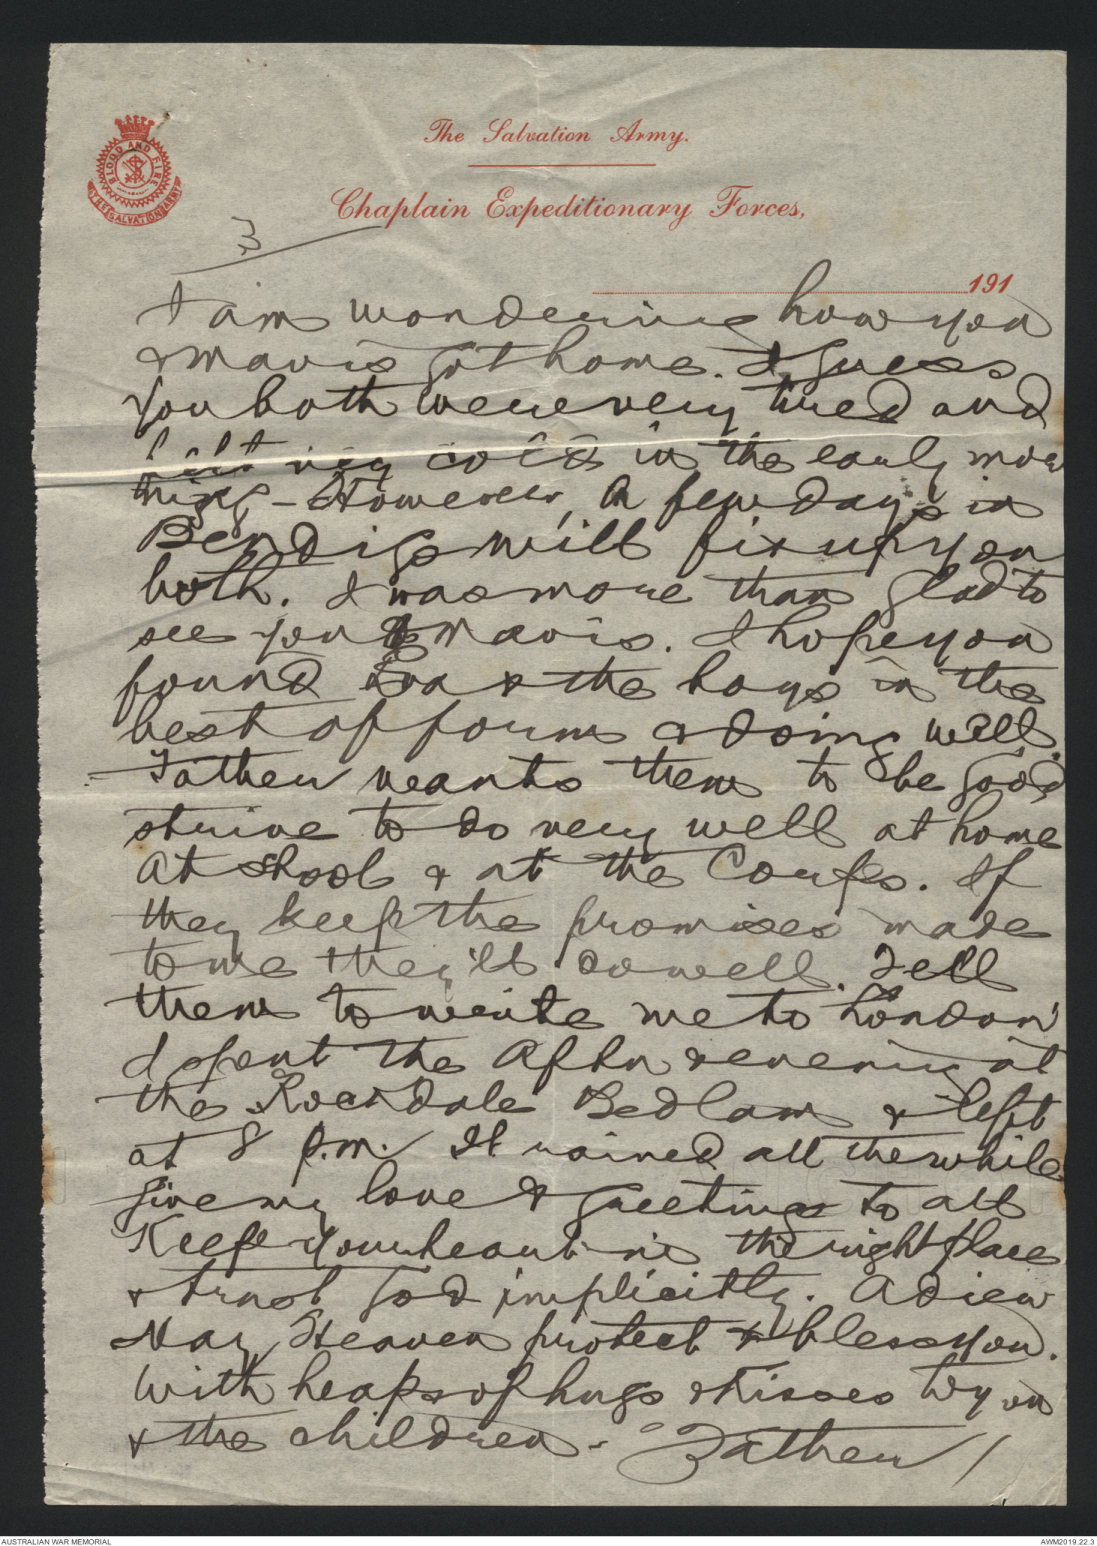 The Salvation Army.
BLOOD AND FIRE
THE SALVATION ARMY
Chaplain Expeditionary Forces,
3
191
I am wondering how you
& Mavis got home. I guess
you both were very tired and
felt very cold in the early mor
ning - However, A few days in
Bendigo will fix up you
both. I was more than glad to
see you & Mavis. I hope you
found Eva & the boys in the
best of form & doing well.
Father wants them to be good
strive to do very well at home
at shool & at the Corps. If
they keep the promises made
to me they'll do well. Tell
them to write me to London
I spent the Aftn & evening at
the Rockdale Bedlam & left
at 8 p.m. It rained all the while
Give my love & greetings to all
Keep your heart in the right place
& trust God implicitly. Adieu
May Heaven protect & bless you.
With heaps of hugs & kisses to you
& the children - "Father"/
AUSTRALIAN WAR MEMORIAL
AWM2019.22.3